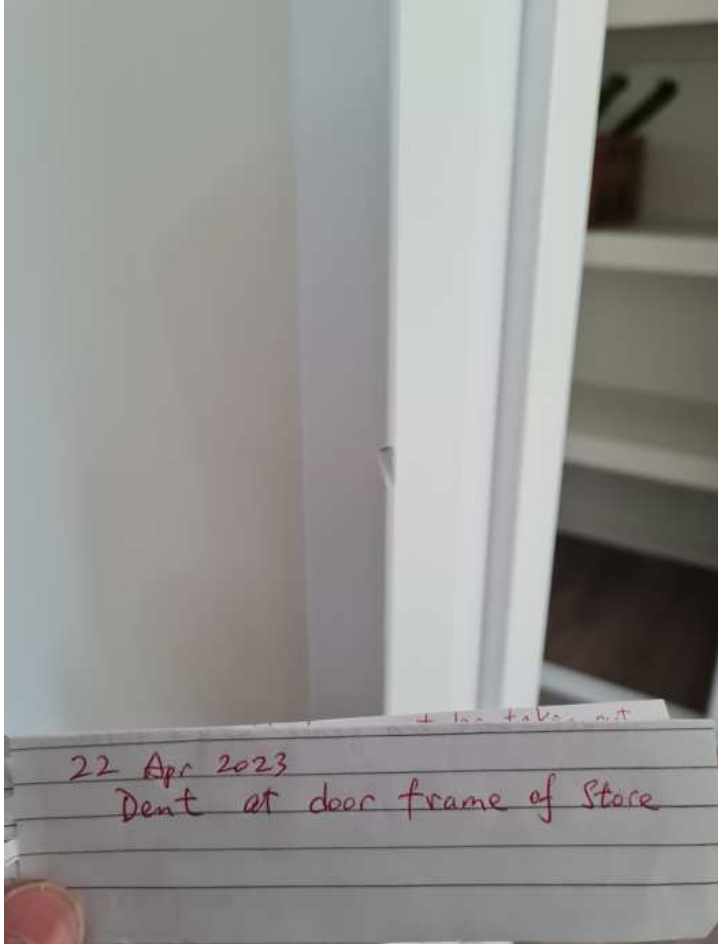 22 Apr 2023
Dent at door frame of Store